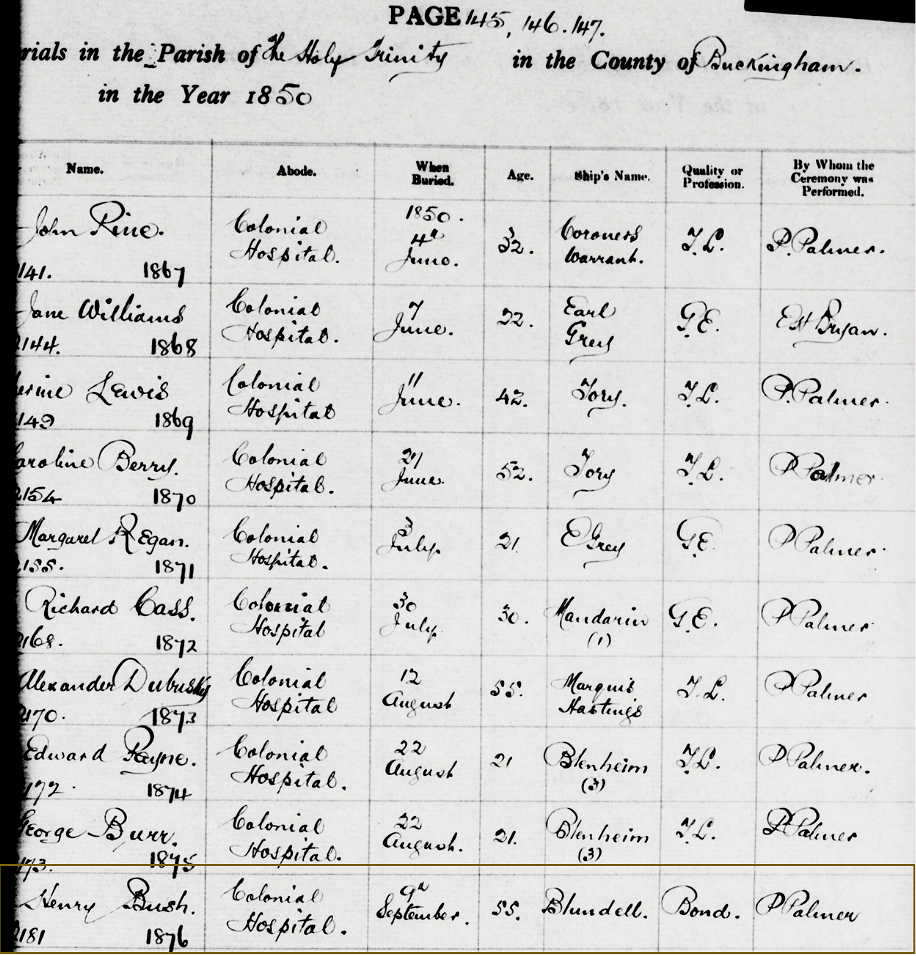 PAGE 145, 146. 147.
rials in the Parish of the Holy Trinity in the County of Buckingham.
in the Year 1850
Name. Abode. When Buried. Age. Ship's Name. Quality or Profession. By Whom the Ceremony was Performed.
1850.
John Rine. Colonial Hospital. 4th June. 32. Coroners Warrant. T.L. P. Palmer.
141. 1867
Jane Williams Colonial Hospital. 7 June. 22. Earl Grey G.E. Bryan.
2144. 1868
erine Lewis Colonial Hospital 11 June. 42. Tory. T.L. P. Palmer.
149 1869
aroline Berry. Colonial Hospital. 21 June. 52. Tory T.L. P Palmer
2154 1870
Margaret Regan. Colonial Hospital. 3 July. 21. E Grey G.E. P Palmer.
2155. 1871
Richard Cass. Colonial Hospital 30 July 30. Mandarin (1) G.E. P Palmer
2168. 1872
Alexander Colonial Hospital 12 August 55. Marquis Hastings T.L. P Palmer
2170. 1873
Edward Payne. Colonial Hospital. 22 August 21 Blenheim (3) T.L. P Palmer.
172. 1874
George Burr. Colonial Hospital. 22 August. 21. Blenheim (3) T.L. P Palmer
173. 1875
Henry Bush. Colonial Hospital. 9th September. 55. Blundell. Bond. P Palmer
2181 1876